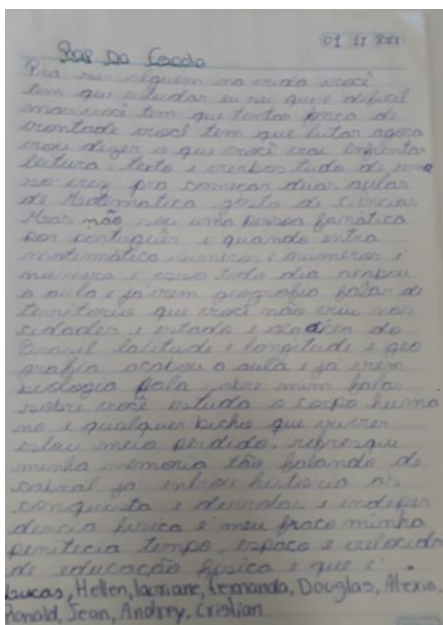 01 11
Rap Da Escola
Pra ser alguém na vida você
tem que estudar eu sei que é dificil
mas você tem que tentar força de
vontade você tem que lutar agora
vou dizer o que você vai enfrentar
leitura, texto e verbos tudo de uma
so vez pra começar duas aulas
de Matematica gosto de ciencias
Mas não sou uma pessoa fanática
por português e quando entra
matemática numeros e numeros e
numero e isso todo dia acabou
a aula e já vem geografia falar de
territorio que você não viu nas
cidades e estado e do
Brasil latitude e longitude e geo
grafia acabou a aula e já vem
biologia fala sobre mim falar
sobre você estuda o corpo huma
no e qualquer bicho que viver
estou meio perdido, refresque
minha memoria tão falando de
cabral ja entrou historia as
conquista e derrotas e indepen
dencia fisica é meu fraco minha
penitecia tempo, espaço e velocida
de educação fisica e que é
Lucas, Hellen, Fernanda, Douglas, Alexia,
Ronald, Jean, Andrey, Cristian